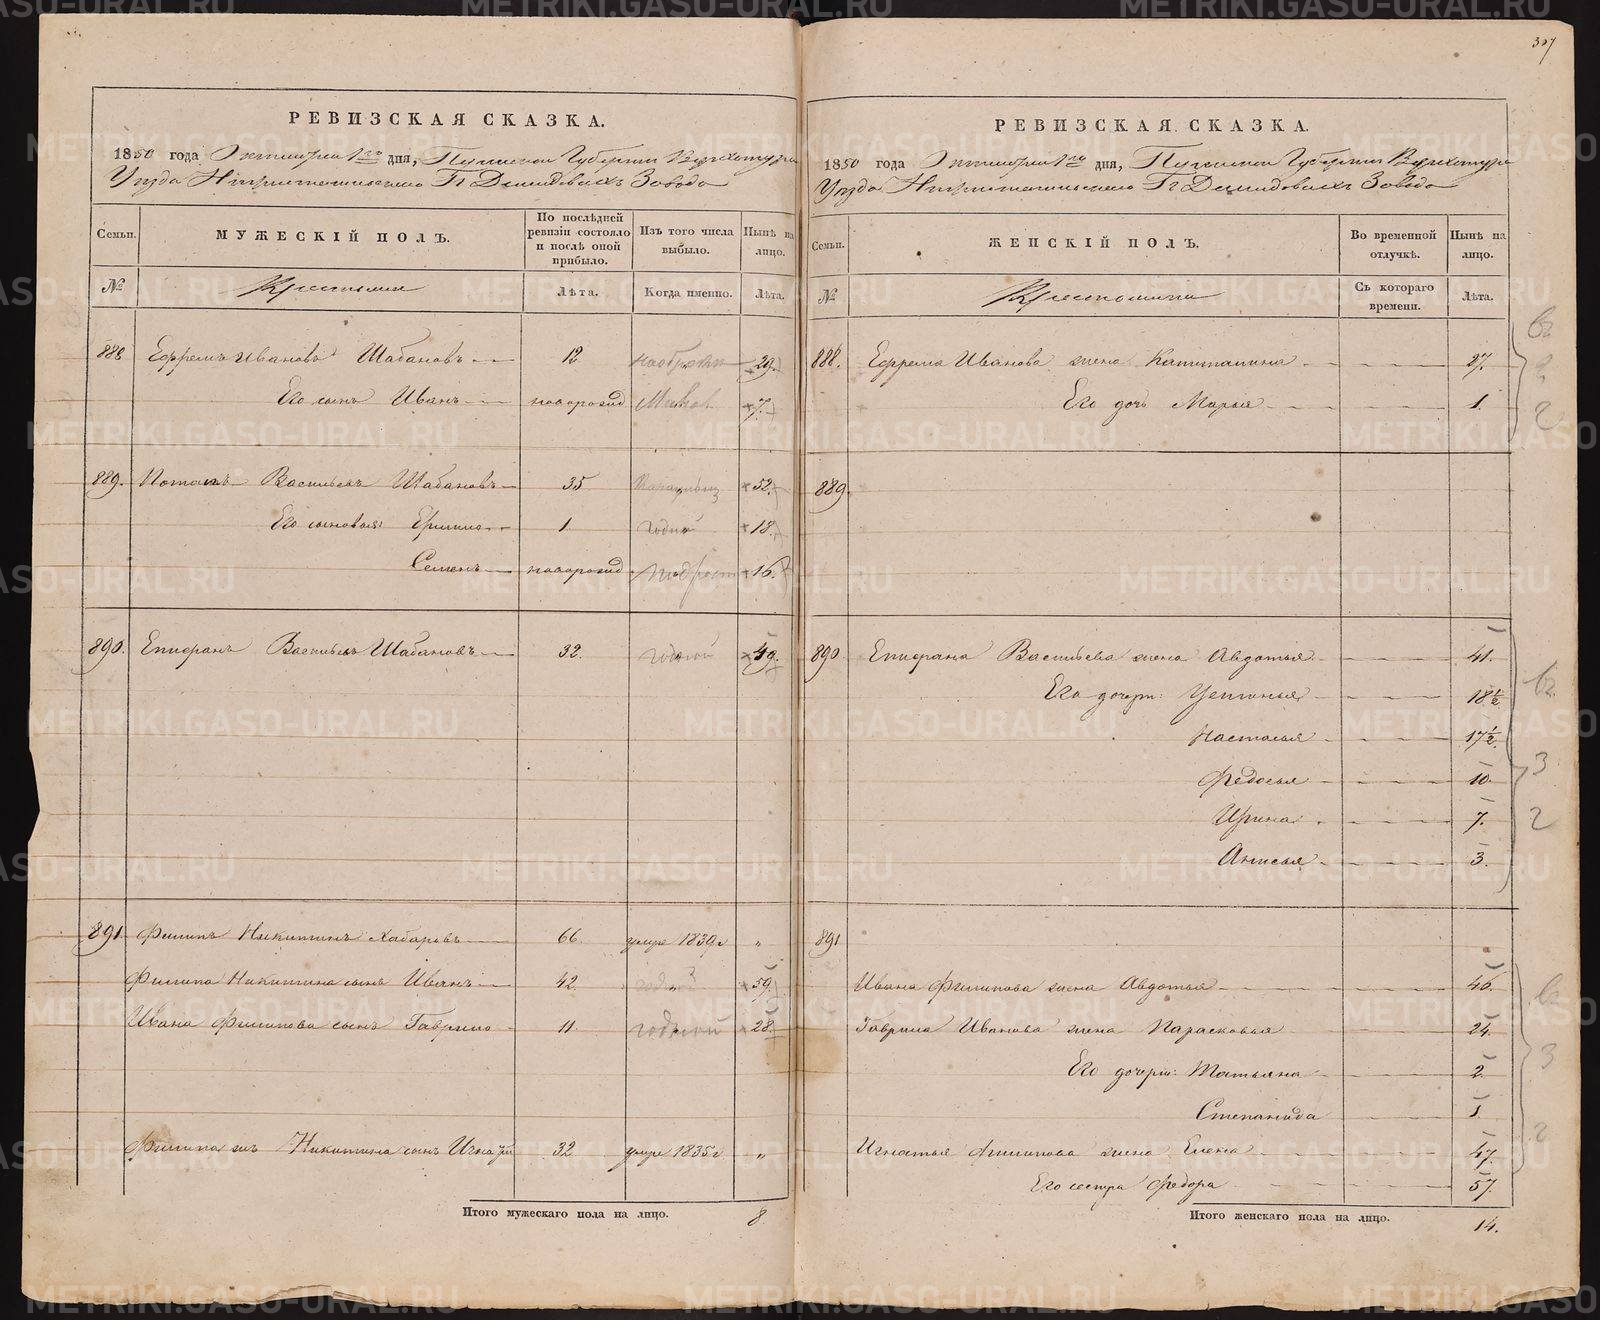 307
РЕВИЗСКАЯ СКАЗКА.
1850 года Октября 1го дня, Пермской Губернии Верхотурск.
Уезда Нижнетагильского Гг Демидовыхъ Завода
Семьи.
МУЖЕСКІЙ ПОЛЪ.
По послѣдней ревизіи состояло и послѣ оной прибыло.
Изъ того числа выбыло.
Нынѣ на лицо.
№
Крестьяне
Лѣта.
Когда именно.
Лѣта.
888 Ефремъ Ивановъ Шабановъ 12 29.
Его сынъ Иванъ новорожд 7.
889. Потапъ Васильевъ Шабановъ 35 52.
Его сыновья: Ермило 1 годной 18.
Семенъ новорожд подрост 16.
890. Епифанъ Васильевъ Шабановъ 32. годной 49.
891. Филипъ Никитинъ Хабаровъ 66. умре 1839г „
Филипа Никитина сынъ Иванъ 42. 59.
Ивана Филипова сынъ Гаврило 11. годной 28.
Филипа Никитина сынъ Игнатій 32 умре 1835г „
Итого мужескаго пола на лицо. 8
РЕВИЗСКАЯ СКАЗКА.
1850 года Октября 1го дня, Пермской Губернии Верхотурск.
Уезда Нижнетагильского Гг Демидовыхъ Завода
Семьи.
ЖЕНСКІЙ ПОЛЪ.
Во временной отлучкѣ.
Нынѣ на лицо.
№
Съ котораго времени.
Лѣта.
888. Ефрема Иванова жена Капиталина 27.
Его дочь Марья 1.
889.
890. Епифана Васильева жена Авдотья 41.
Его дочери: Устинья 18½
Настасья 17½
Федосья 10.
Ирина 7.
Анисья 3.
891
Ивана Филипова жена Авдотья 46.
Гаврила Иванова жена Парасковья 24.
Его дочери: Татьяна 2
Степанида 1.
Игнатья Филипова жена Елена 47.
Его сестра Федора 57.
Итого женскаго пола на лицо. 14.
METRIKI.GASO-URAL.RU